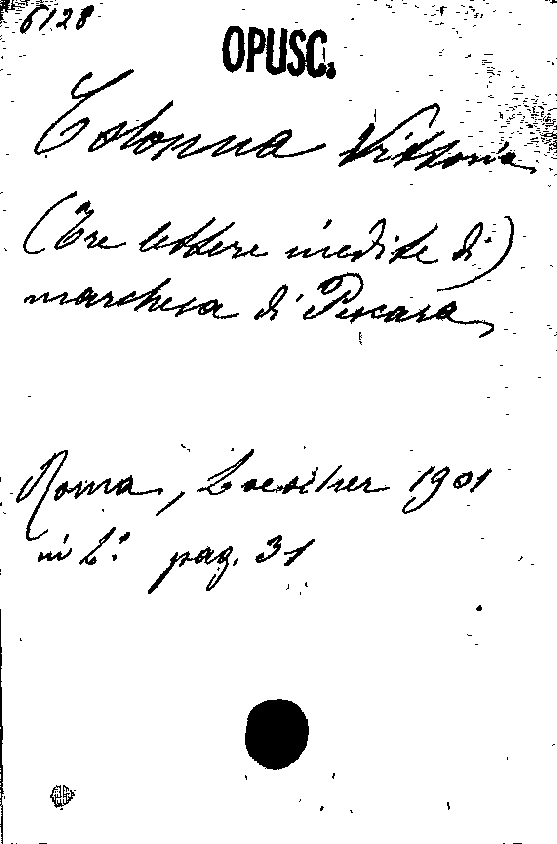 6128
OPUSC.
Colonna Vittoria
(Tre lettere inedite di)
marchesa di Pescara
Roma, Loescher 1901
in 8.° pag. 31